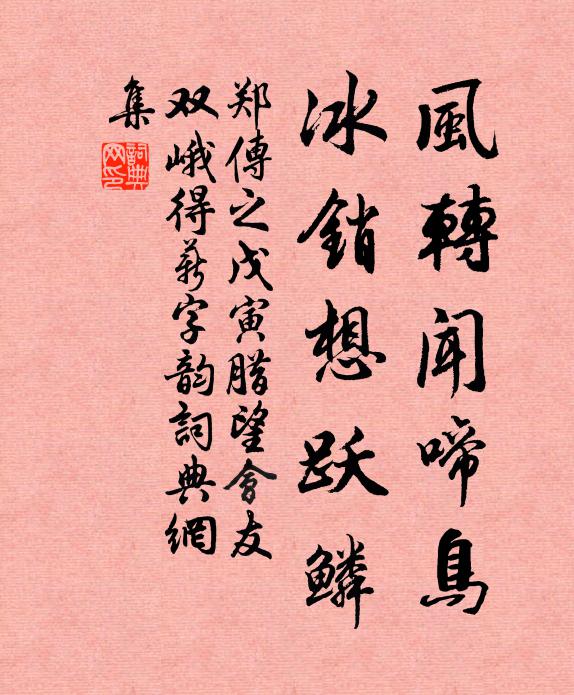 風轉聞啼鳥
冰銷想跃鱗
郑傳之戊寅腊望會友
双峨得薪字韵詞典網
集
詞典網印